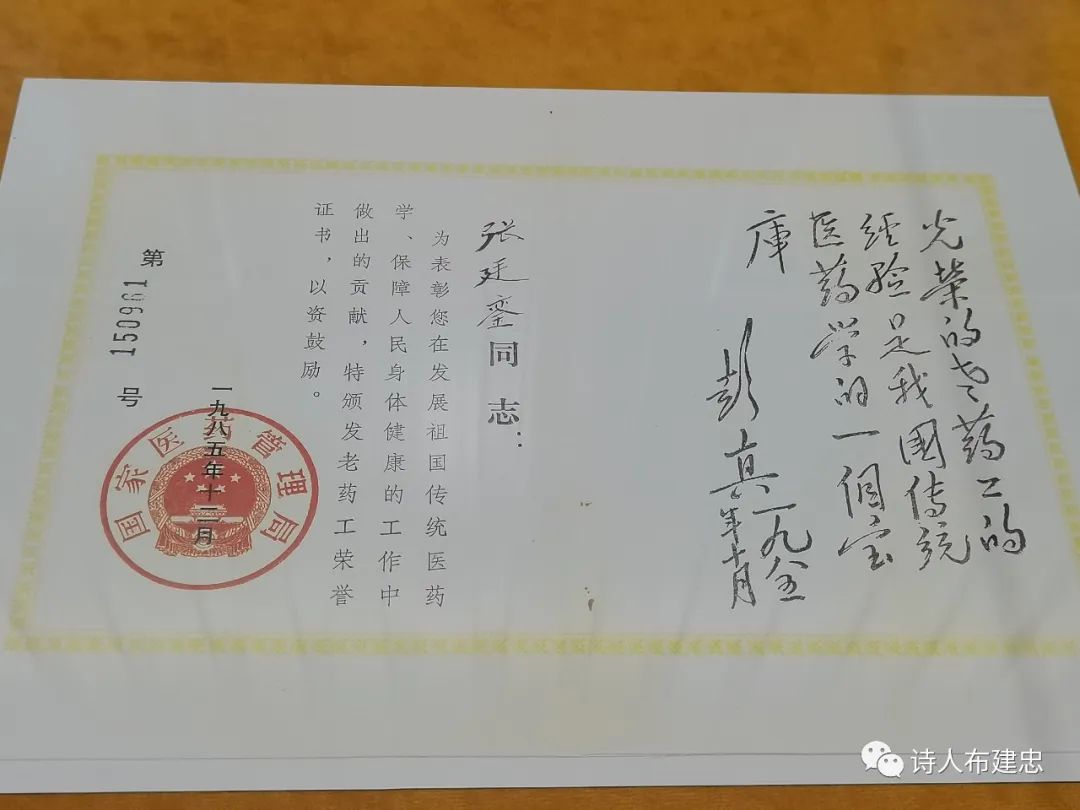 光榮的老药工的
经验是我國传统
医药学的一個宝
庫
彭真 一九八五
年十月
张廷銮同志：
为表彰您在发展祖国传统医药
学、保障人民身体健康的工作中
做出的贡献，特颁发老药工荣誉
证书，以资鼓励。
一九八五年十二月
国家医药管理局
第150961号
诗人布建忠